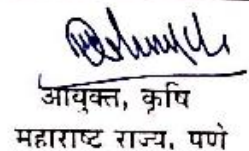 आयुक्त, कृषि
महाराष्ट राज्य, पणे